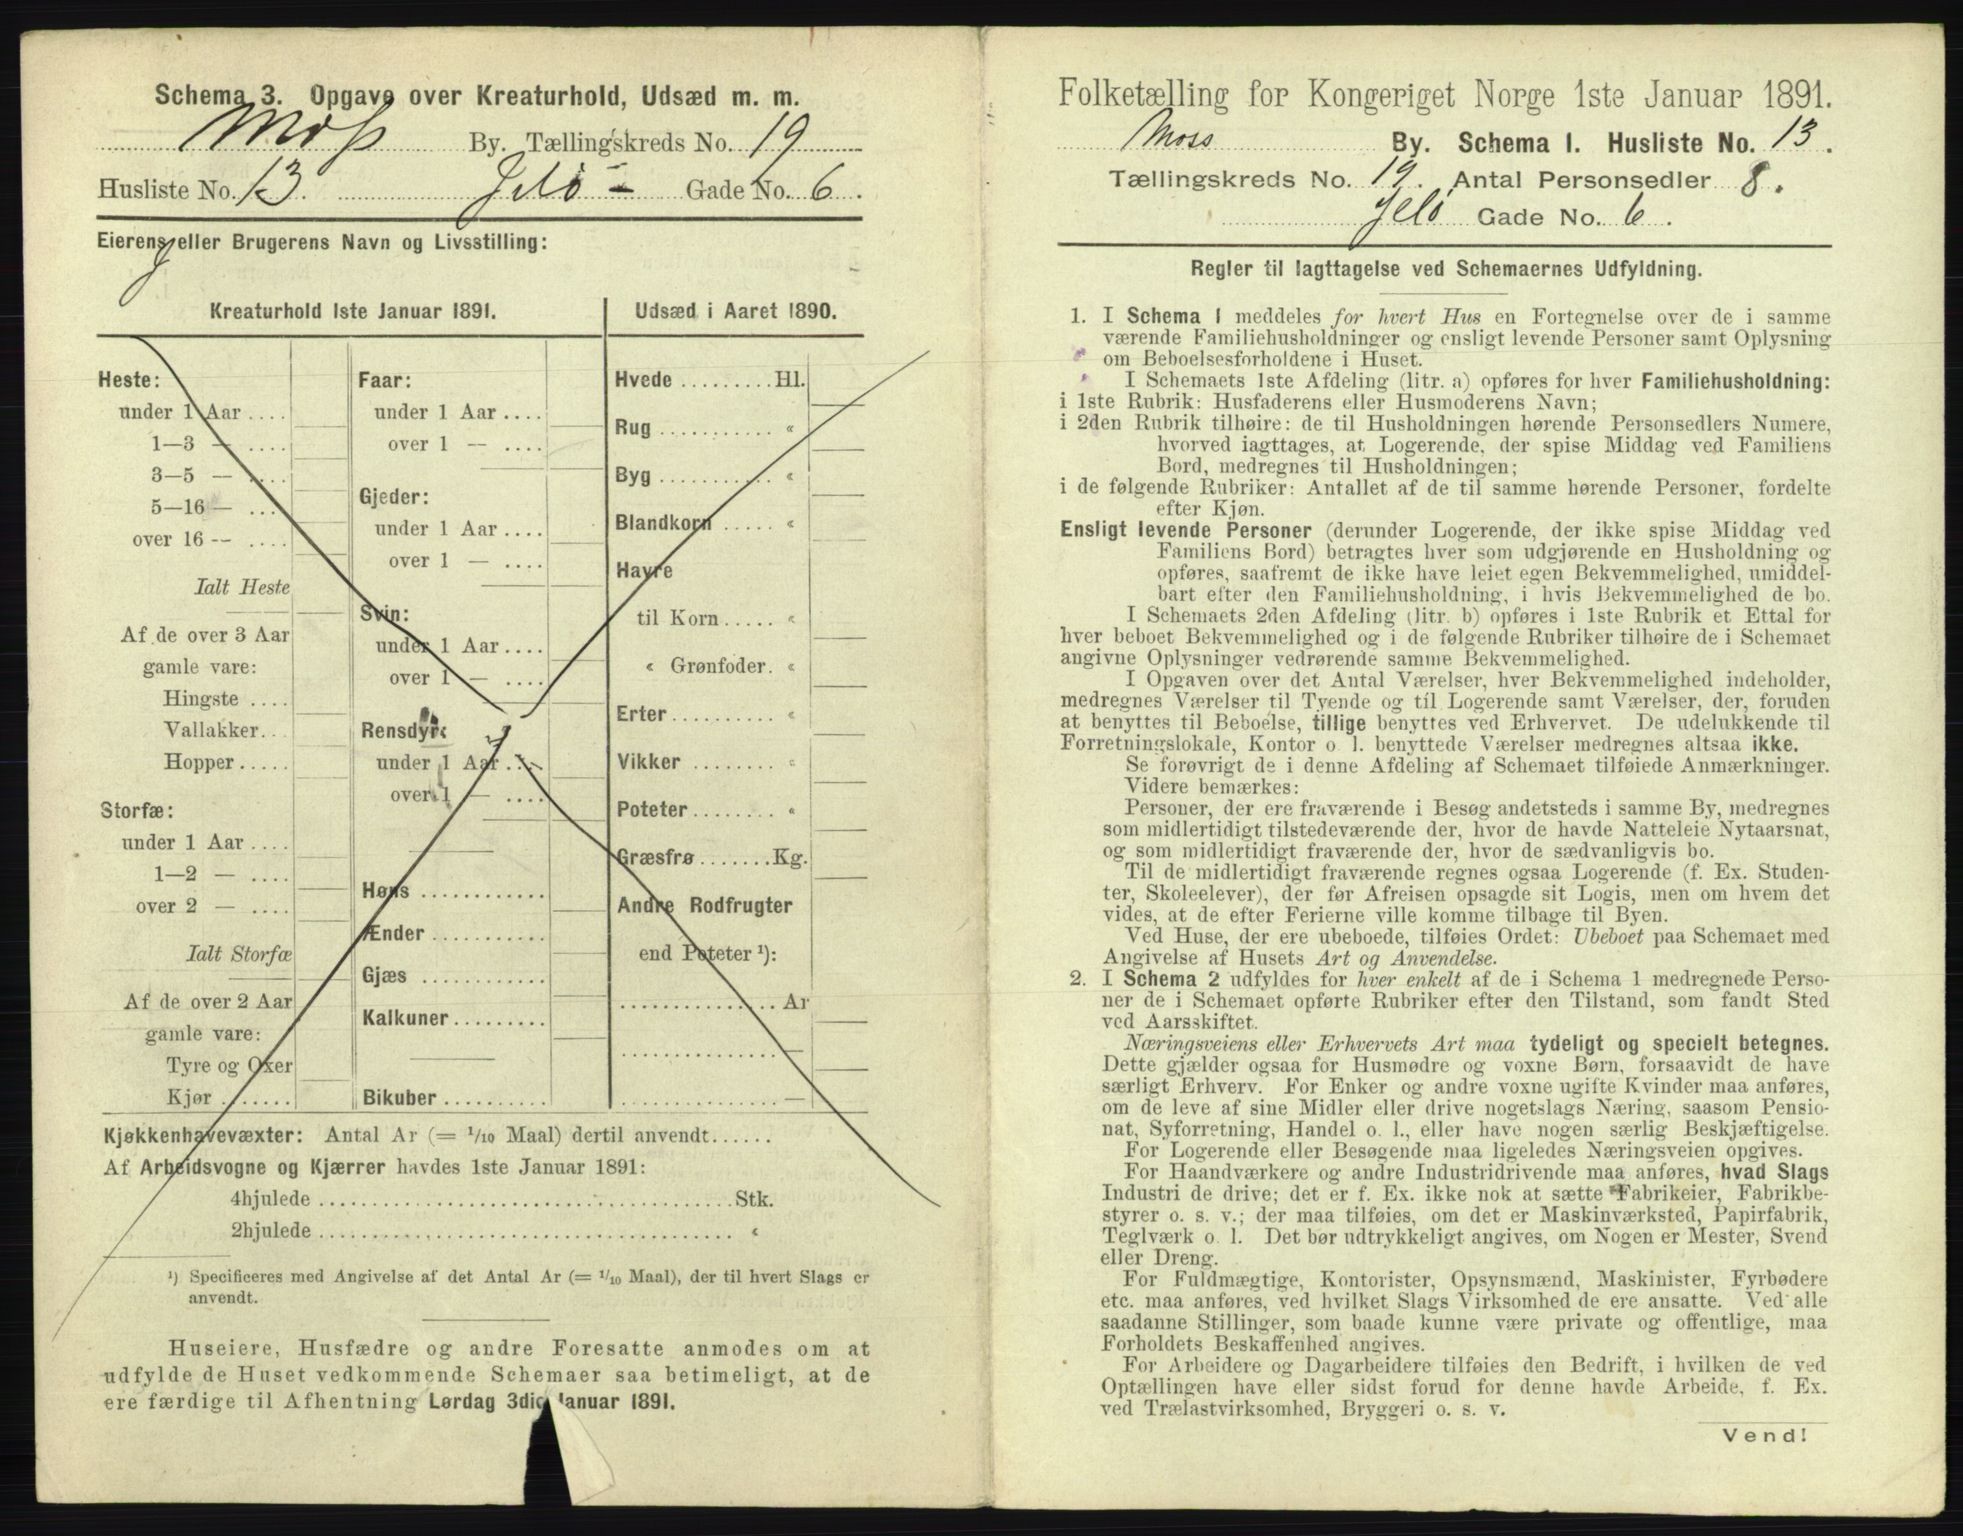 Schema 3. Opgave over Kreaturhold, Udsæd m. m.
Moss By. Tællingskreds No. 19
Husliste No. 13 Jelø - Gade No. 6.
Eierens eller Brugerens Navn og Livsstilling:
Kreaturhold 1ste Januar 1891.
Heste:
under 1 Aar ....
1—3 — ....
3—5 — ....
5—16 — ...
over 16 -- ....
Ialt Heste
Af de over 3 Aar
gamle vare:
Hingste ....
Vallakker...
Hopper .....
Storfæ:
under 1 Aar ....
1—2 — ....
over 2 — ....
Ialt Storfæ
Af de over 2 Aar
gamle vare:
Tyre og Oxer
Kjør .......
Faar:
under 1 Aar ....
over 1 — ....
Gjeder:
under 1 Aar ....
over 1 — ....
Svin:
under 1 Aar ....
over 1 — ....
Rensdyr:
under 1 Aar ....
over 1 — ....
Høns ............
Ænder ...........
Gjæs ............
Kalkuner.........
Bikuber ..........
Udsæd i Aaret 1890.
Hvede ......... Hl.
Rug ........... «
Byg ........... «
Blandkorn ..... «
Havre
til Korn ..... «
« Grønfoder. «
Erter .......... «
Vikker ........ «
Poteter ........ «
Græsfrø ....... Kg.
Andre Rodfrugter
end Poteter ¹):
............... Ar
............... —
............... —
Kjøkkenhavevæxter: Antal Ar (= 1/10 Maal) dertil anvendt......
Af Arbeidsvogne og Kjærrer havdes 1ste Januar 1891:
4hjulede ........................................ Stk.
2hjulede ........................................ «
¹) Specificeres med Angivelse af det Antal Ar (= 1/10 Maal), der til hvert Slags er
anvendt.
Huseiere, Husfædre og andre Foresatte anmodes om at
udfylde de Huset vedkommende Schemaer saa betimeligt, at de
ere færdige til Afhentning Lørdag 3die Januar 1891.
Folketælling for Kongeriget Norge 1ste Januar 1891.
Moss By. Schema I. Husliste No. 13.
Tællingskreds No. 19. Antal Personsedler 8.
Jelø Gade No. 6.
Regler til Iagttagelse ved Schemaernes Udfyldning.
1. I Schema 1 meddeles for hvert Hus en Fortegnelse over de i samme
værende Familiehusholdninger og ensligt levende Personer samt Oplysning
om Beboelsesforholdene i Huset.
I Schemaets 1ste Afdeling (litr. a) opføres for hver Familiehusholdning:
i 1ste Rubrik: Husfaderens eller Husmoderens Navn;
i 2den Rubrik tilhøire: de til Husholdningen hørende Personsedlers Numere,
hvorved iagttages, at Logerende, der spise Middag ved Familiens
Bord, medregnes til Husholdningen;
i de følgende Rubriker: Antallet af de til samme hørende Personer, fordelte
efter Kjøn.
Ensligt levende Personer (derunder Logerende, der ikke spise Middag ved
Familiens Bord) betragtes hver som udgjørende en Husholdning og
opføres, saafremt de ikke have leiet egen Bekvemmelighed, umiddel-
bart efter den Familiehusholdning, i hvis Bekvemmelighed de bo.
I Schemaets 2den Afdeling (litr. b) opføres i 1ste Rubrik et Ettal for
hver beboet Bekvemmelighed og i de følgende Rubriker tilhøire de i Schemaet
angivne Oplysninger vedrørende samme Bekvemmelighed.
I Opgaven over det Antal Værelser, hver Bekvemmelighed indeholder,
medregnes Værelser til Tyende og til Logerende samt Værelser, der, foruden
at benyttes til Beboelse, tillige benyttes ved Erhvervet. De udelukkende til
Forretningslokale, Kontor o. l. benyttede Værelser medregnes altsaa ikke.
Se forøvrigt de i denne Afdeling af Schemaet tilføiede Anmærkninger.
Videre bemærkes:
Personer, der ere fraværende i Besøg andetsteds i samme By, medregnes
som midlertidigt tilstedeværende der, hvor de havde Natteleie Nytaarsnat,
og som midlertidigt fraværende der, hvor de sædvanligvis bo.
Til de midlertidigt fraværende regnes ogsaa Logerende (f. Ex. Studen-
ter, Skoleelever), der før Afreisen opsagde sit Logis, men om hvem det
vides, at de efter Ferierne ville komme tilbage til Byen.
Ved Huse, der ere ubeboede, tilføies Ordet: Ubeboet paa Schemaet med
Angivelse af Husets Art og Anvendelse.
2. I Schema 2 udfyldes for hver enkelt af de i Schema 1 medregnede Perso-
ner de i Schemaet opførte Rubriker efter den Tilstand, som fandt Sted
ved Aarsskiftet.
Næringsveiens eller Erhvervets Art maa tydeligt og specielt betegnes.
Dette gjælder ogsaa for Husmødre og voxne Børn, forsaavidt de have
særligt Erhverv. For Enker og andre voxne ugifte Kvinder maa anføres,
om de leve af sine Midler eller drive nogetslags Næring, saasom Pensio-
nat, Syforretning, Handel o. l., eller have nogen særlig Beskjæftigelse.
For Logerende eller Besøgende maa ligeledes Næringsveien opgives.
For Haandværkere og andre Industridrivende maa anføres, hvad Slags
Industri de drive; det er f. Ex. ikke nok at sætte Fabrikeier, Fabrikbe-
styrer o. s. v.; der maa tilføies, om det er Maskinværksted, Papirfabrik,
Teglværk o. l. Det bør udtrykkeligt angives, om Nogen er Mester, Svend
eller Dreng.
For Fuldmægtige, Kontorister, Opsynsmænd, Maskinister, Fyrbødere
etc. maa anføres, ved hvilket Slags Virksomhed de ere ansatte. Ved alle
saadanne Stillinger, som baade kunne være private og offentlige, maa
Forholdets Beskaffenhed angives.
For Arbeidere og Dagarbeidere tilføies den Bedrift, i hvilken de ved
Optællingen have eller sidst forud for denne havde Arbeide, f. Ex.
ved Trælastvirksomhed, Bryggeri o. s. v.
Vend!